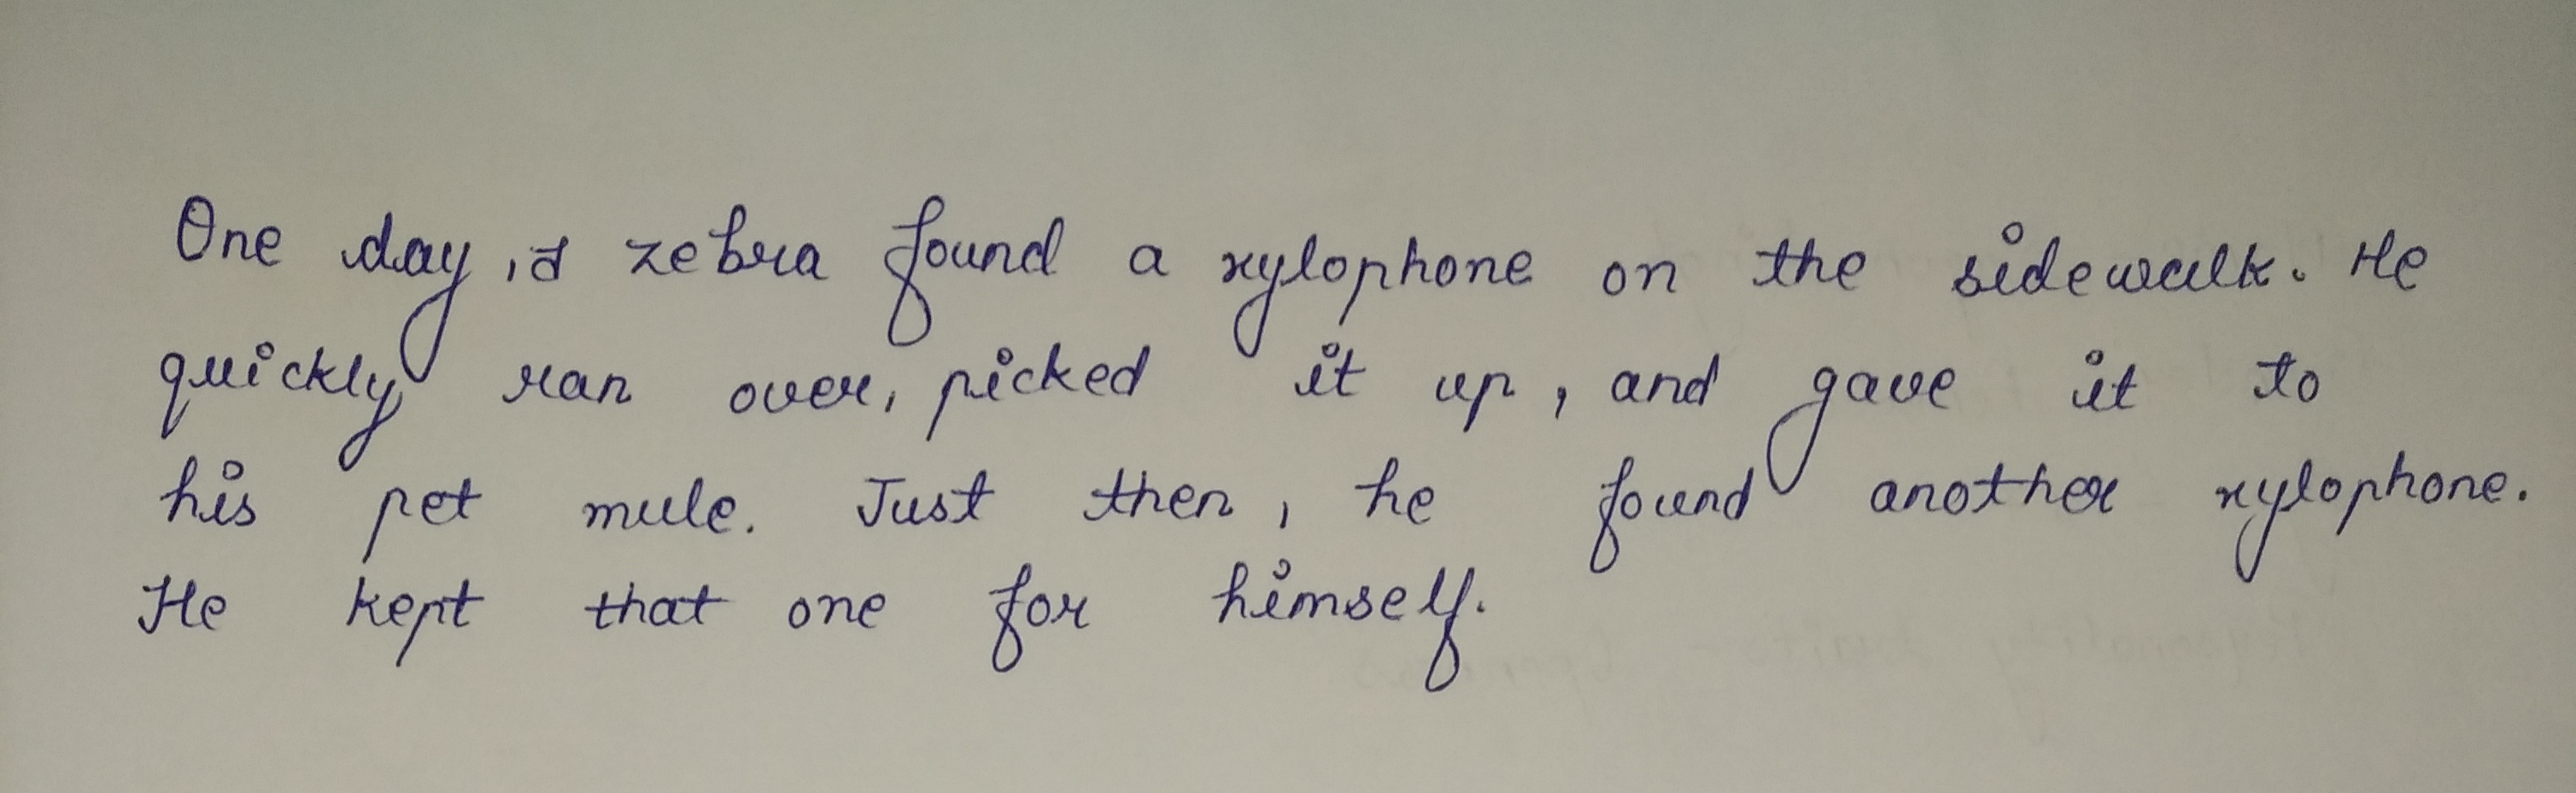 One day, a zebra found a xylophone on the sidewalk. He
quickly ran over, picked it up, and gave it to
his pet mule. Just then, he found another xylophone.
He kept that one for himself.